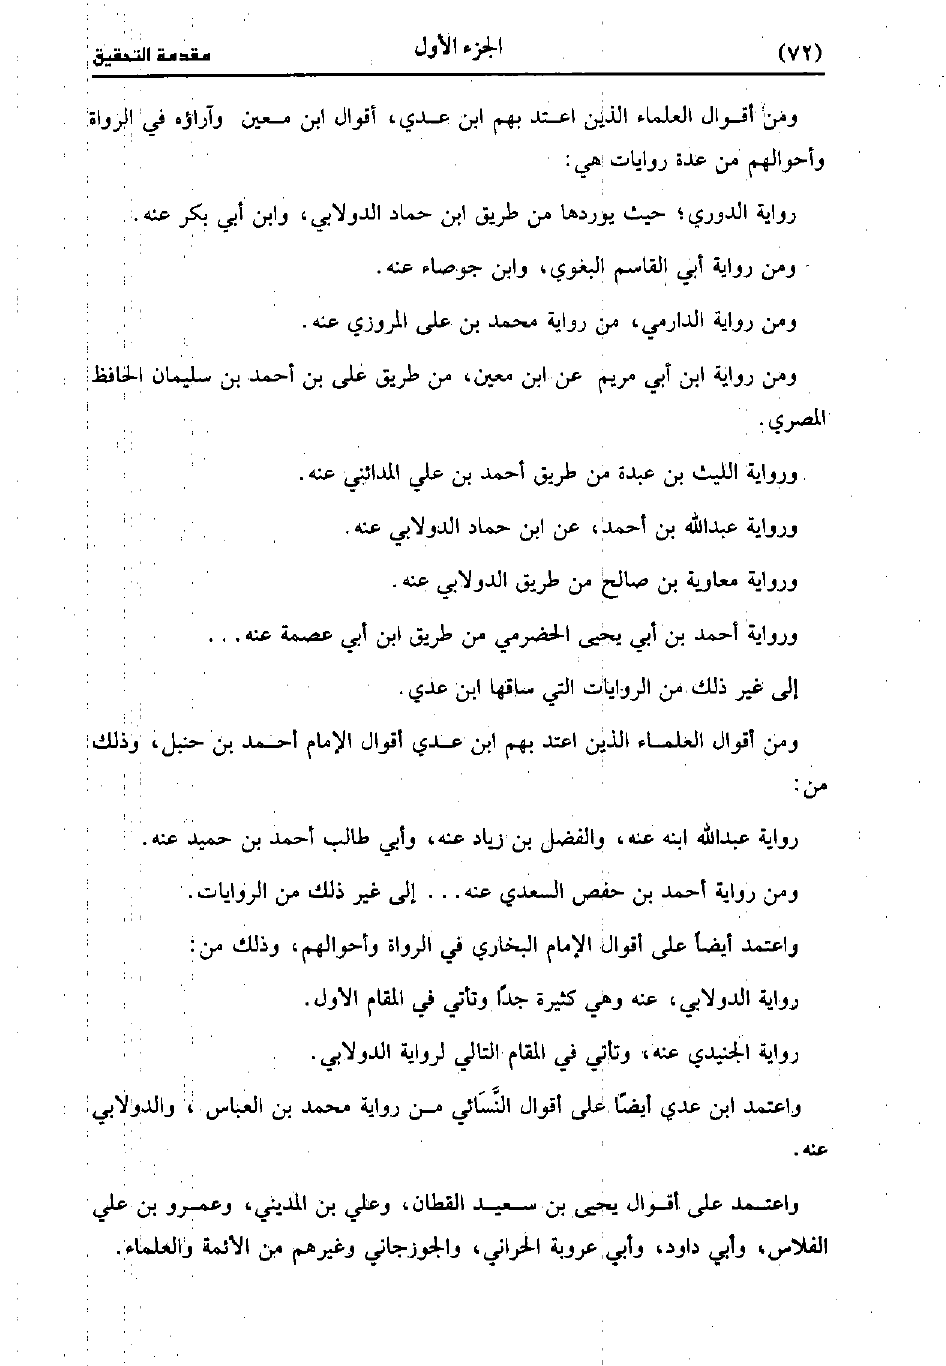 (٧٢) الجزء الأول مقدمة التحقيق
ومن أقوال العلماء الذين اعتد بهم ابن عدي، أقوال ابن معين وآراؤه في الرواة
وأحوالهم من عدة روايات هي:
رواية الدوري؛ حيث يوردها من طريق ابن حماد الدولابي، وابن أبي بكر عنه.
ومن رواية أبي القاسم البغوي، وابن جوصاء عنه.
ومن رواية الدارمي، من رواية محمد بن على المروزي عنه.
ومن رواية ابن أبي مريم عن ابن معين، من طريق على بن أحمد بن سليمان الحافظ
المصري.
ورواية الليث بن عبدة من طريق أحمد بن علي المدائني عنه.
ورواية عبدالله بن أحمد، عن ابن حماد الدولابي عنه.
ورواية معاوية بن صالح من طريق الدولابي عنه.
ورواية أحمد بن أبي يحيى الحضرمي من طريق ابن أبي عصمة عنه...
إلى غير ذلك من الروايات التي ساقها ابن عدي.
ومن أقوال العلماء الذين اعتد بهم ابن عدي أقوال الإمام أحمد بن حنبل، وذلك
من:
رواية عبدالله ابنه عنه، والفضل بن زياد عنه، وأبي طالب أحمد بن حميد عنه.
ومن رواية أحمد بن حفص السعدي عنه... إلى غير ذلك من الروايات.
واعتمد أيضاً على أقوال الإمام البخاري في الرواة وأحوالهم، وذلك من:
رواية الدولابي، عنه وهي كثيرة جدًا وتأتي في المقام الأول.
رواية الجنيدي عنه، وتأتي في المقام التالي لرواية الدولابي.
واعتمد ابن عدي أيضًا على أقوال النَّسَائي من رواية محمد بن العباس ، والدولابي
عنه.
واعتمد على أقوال يحيى بن سعيد القطان، وعلي بن المديني، وعمرو بن علي
الفلاس، وأبي داود، وأبي عروبة الحراني، والجوزجاني وغيرهم من الأئمة والعلماء.